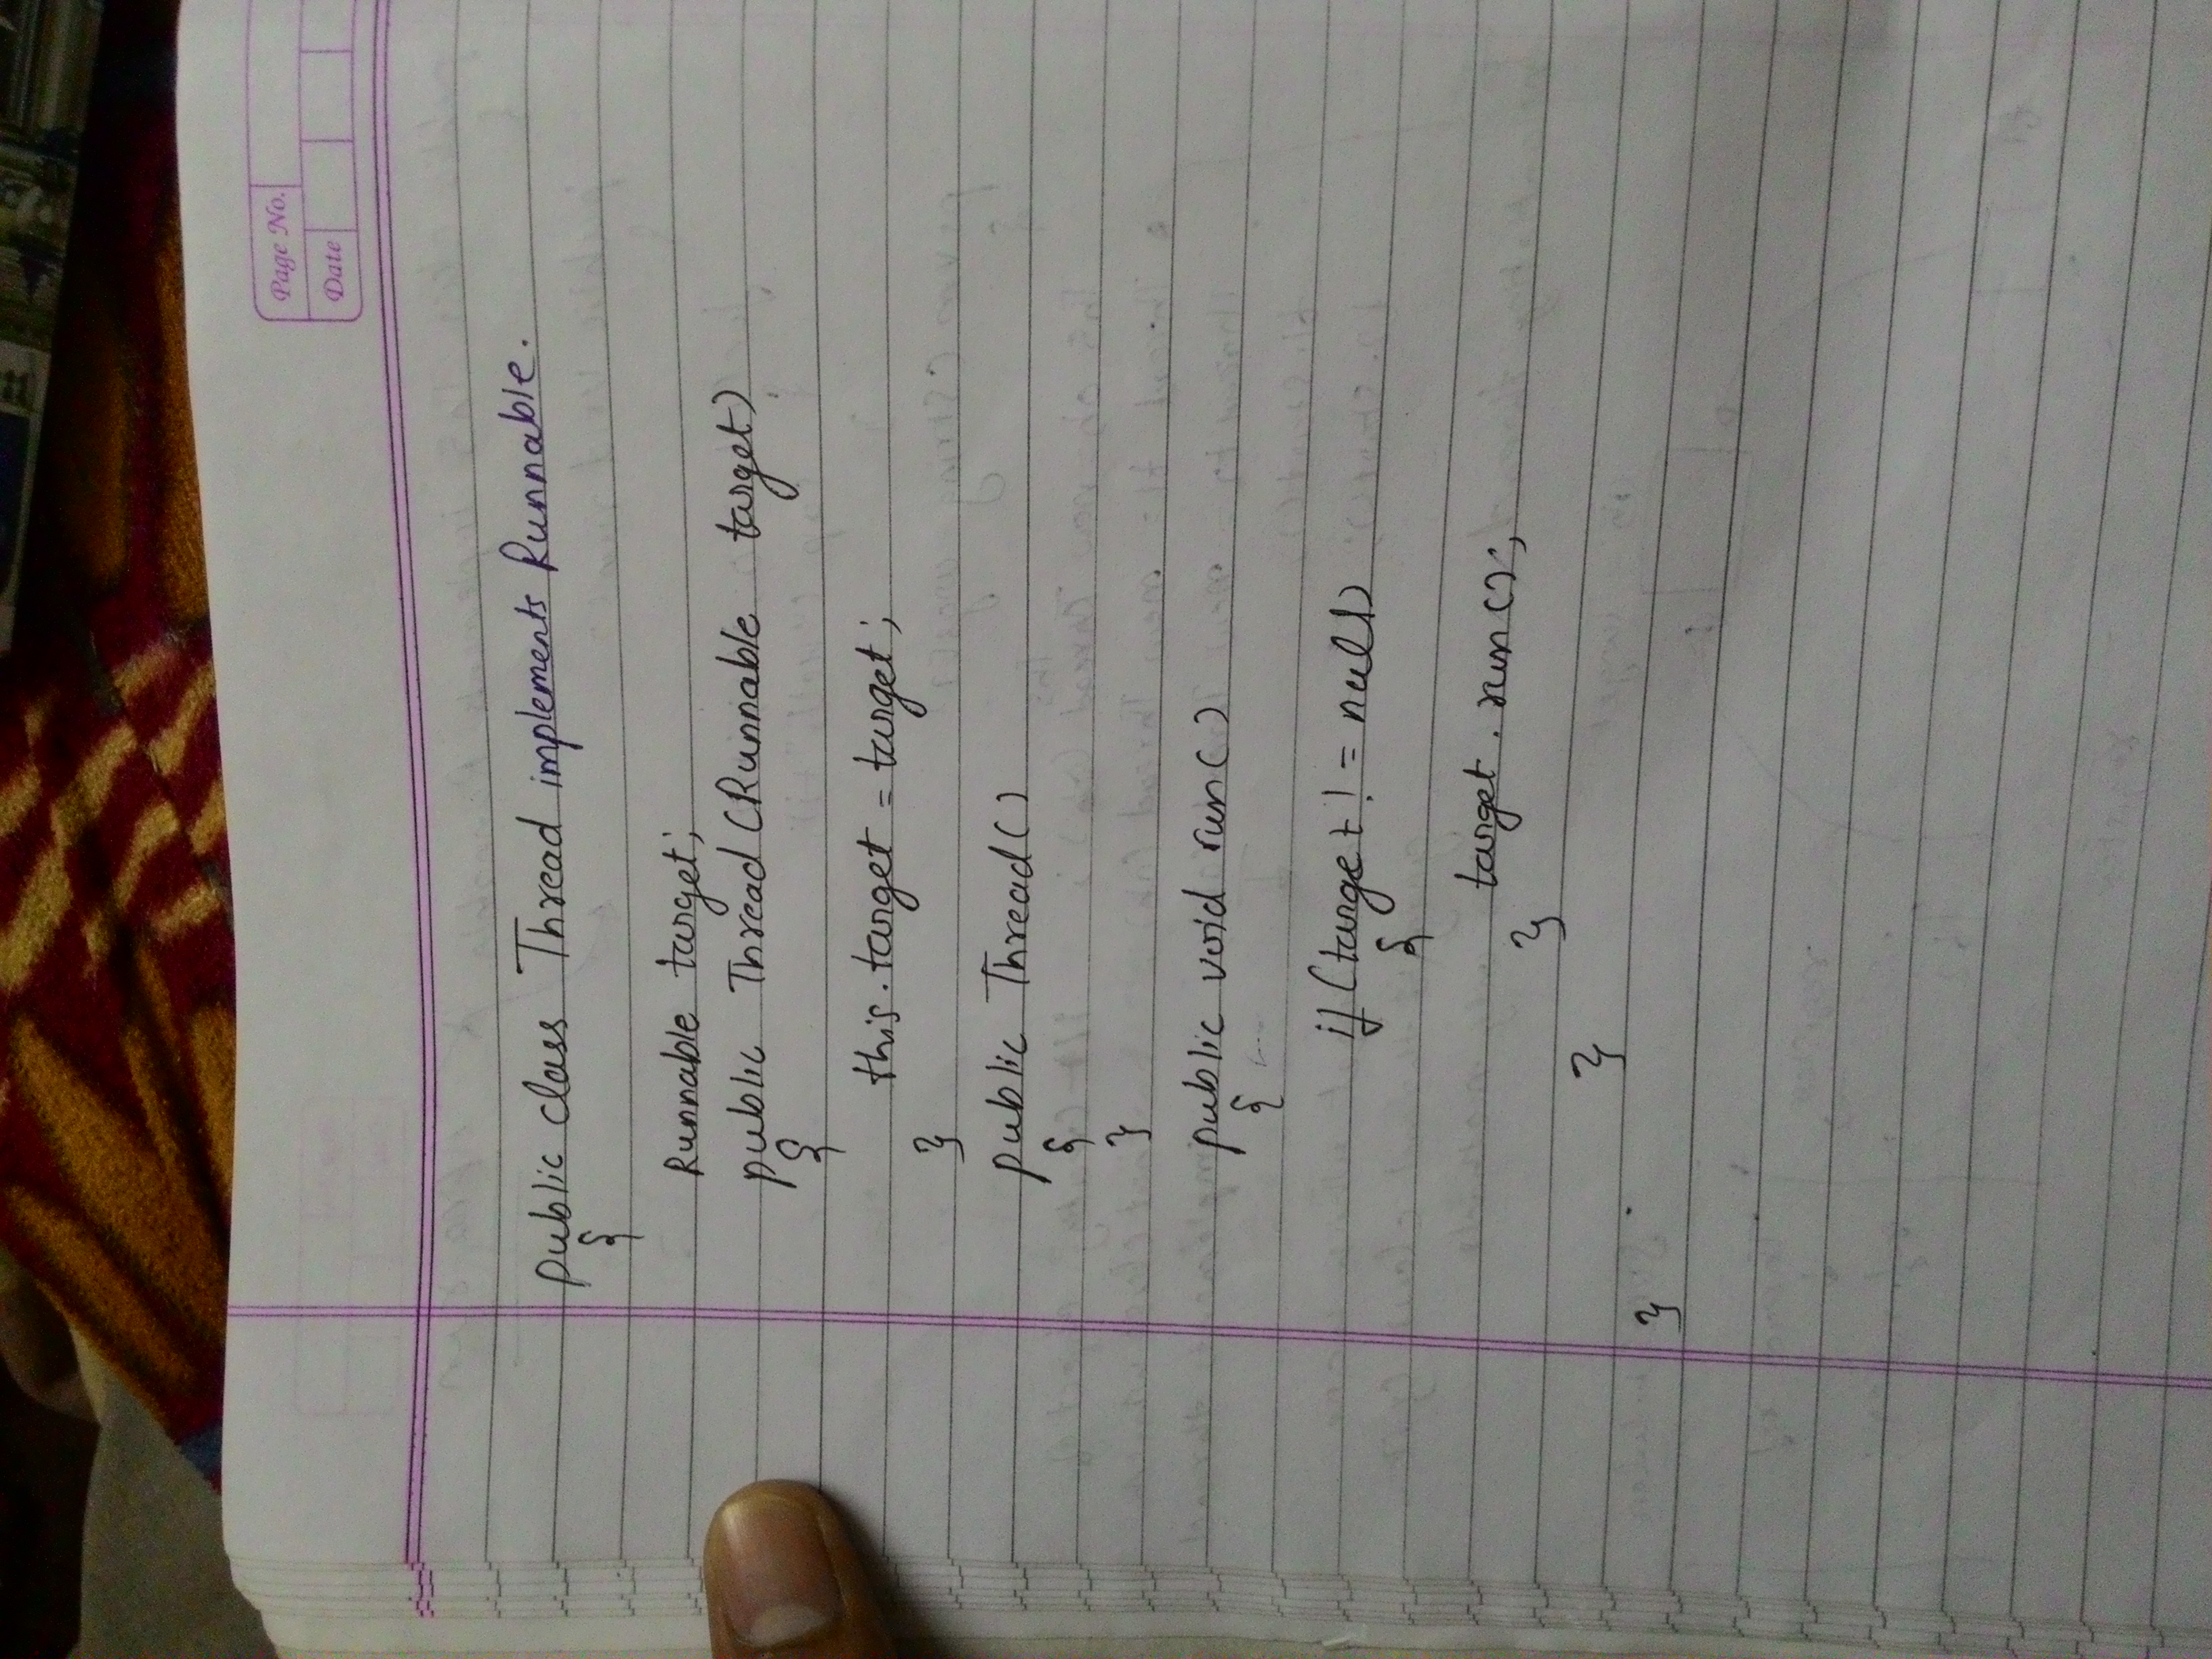 Page No.
Date
public class Thread implements Runnable.
{
Runnable target;
public Thread (Runnable target)
{
this.target = target;
}
public Thread()
{
}
public void run()
{
if (target != null)
{
target.run();
}
}
}